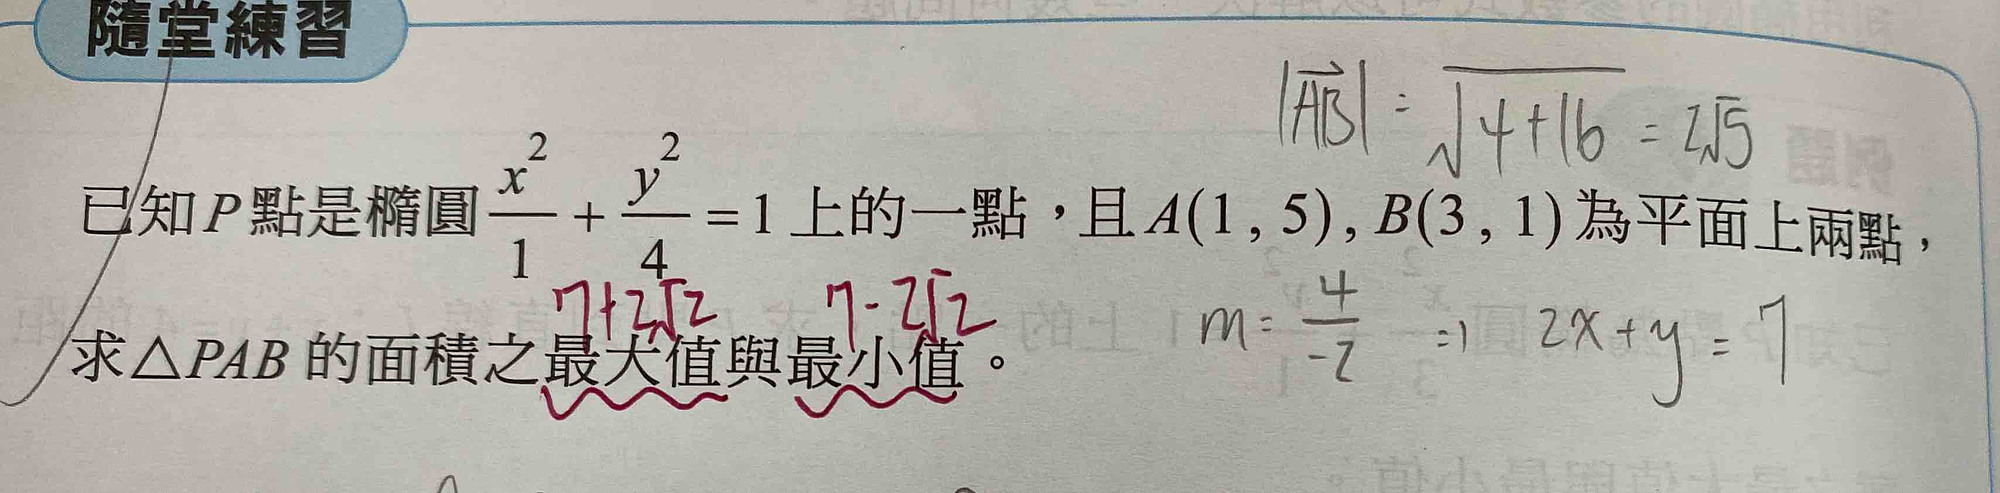 隨堂練習
|AB| = √4+16 = 2√5
已知P點是橢圓 x²/1 + y²/4 = 1 上的一點，且A(1, 5), B(3, 1)為平面上兩點，
7+2√2 7-2√2 m = 4/-2 2x+y=7
求△PAB 的面積之最大值與最小值。